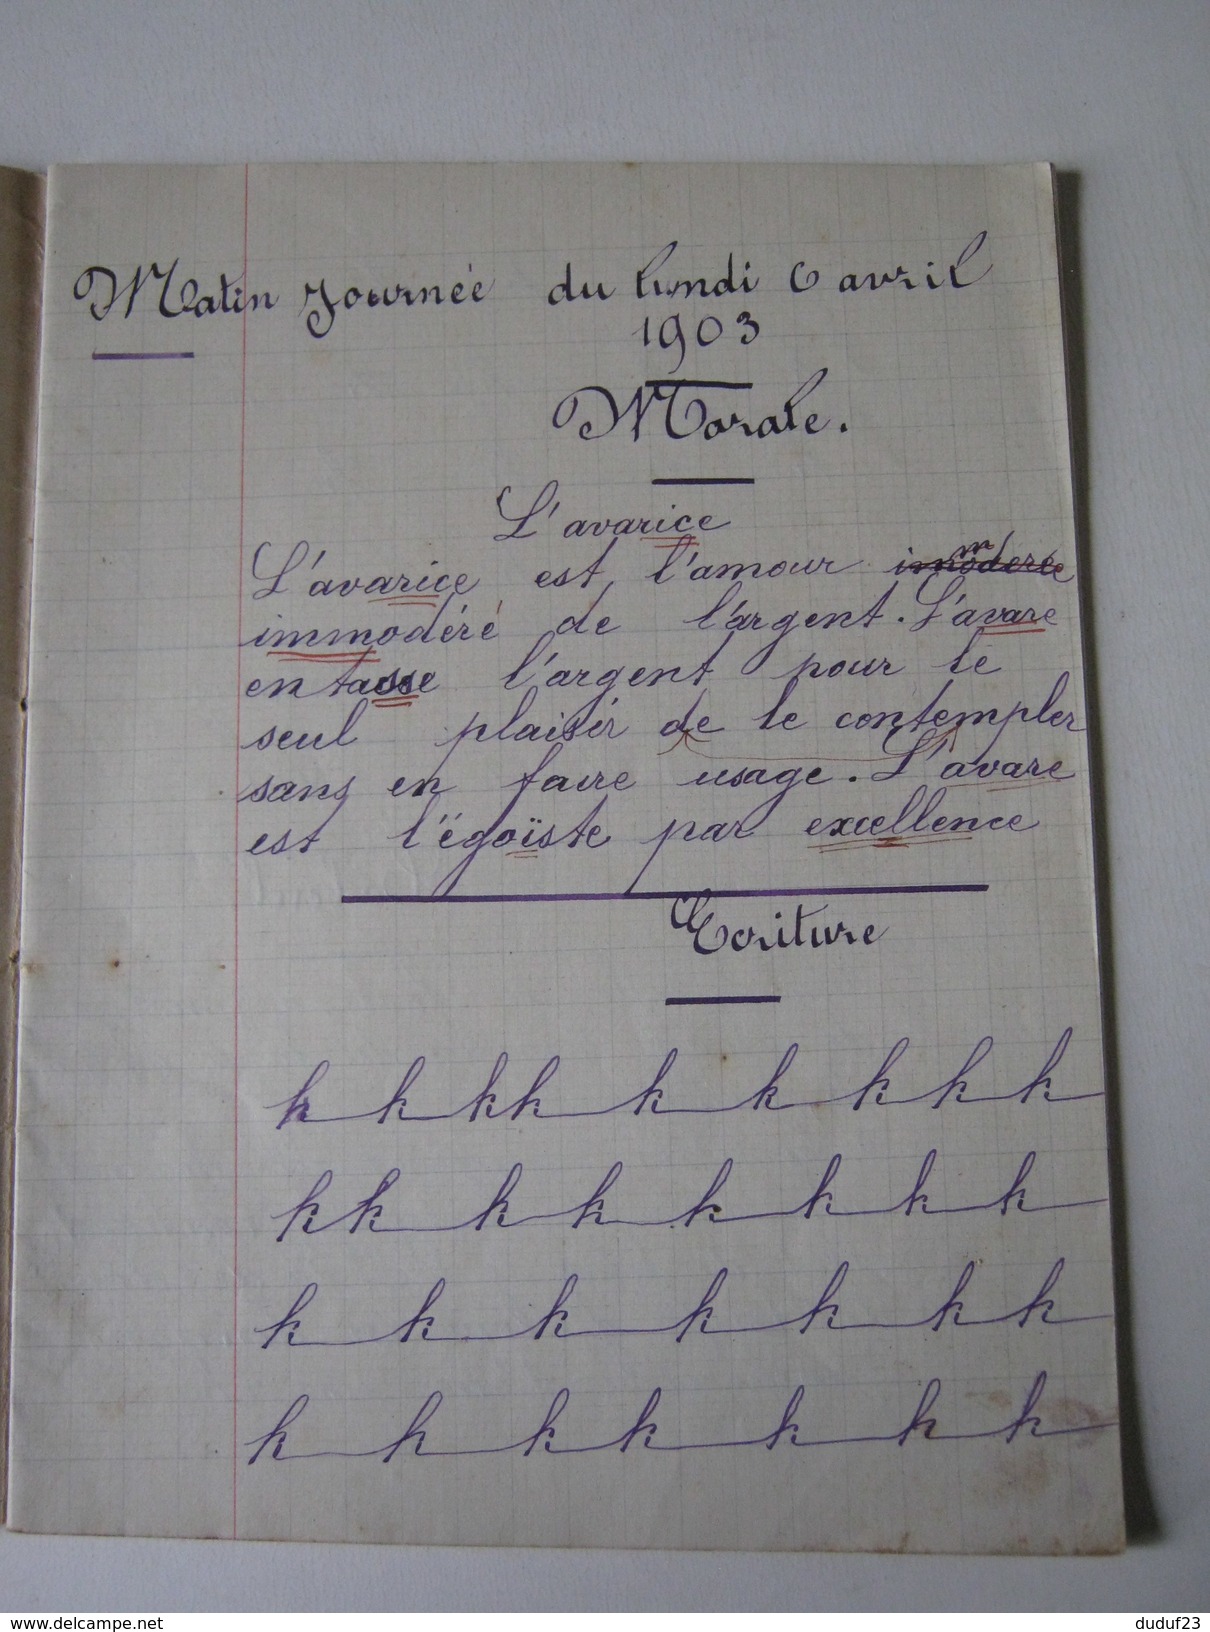 Matin Journée du lundi 6 avril
1903
Morale.
L'avarice
L'avarice est l'amour immoderée
immodéré de l'argent. L'avare
entasse l'argent pour le
seul plaisir de le contempler
sans en faire usage. L'avare
est l'égoïste par excellence
Ecriture
k k k k k k k k k
k k k k k k k k
k k k k k k k
k k k k k k k
delcampe.net
duduf23